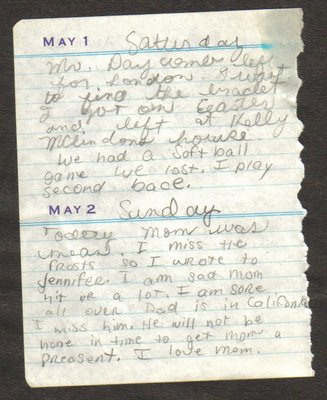 MAY 1 Satturday
Mr. Daycombe left
for london. I want
to find the braclet
I got on Easter
and left at Kelly
McLindons house
We had a soft ball
game we lost. I play
second bace.
MAY 2 Sunday
Today Mom was
mean. I miss the
Frosts so I wrote to
Jennifer. I am sad mom
hit me a lot. I am sore
all over Dad is in California
I miss him. He will not be
home in time to get mom a
preasent. I love mom.